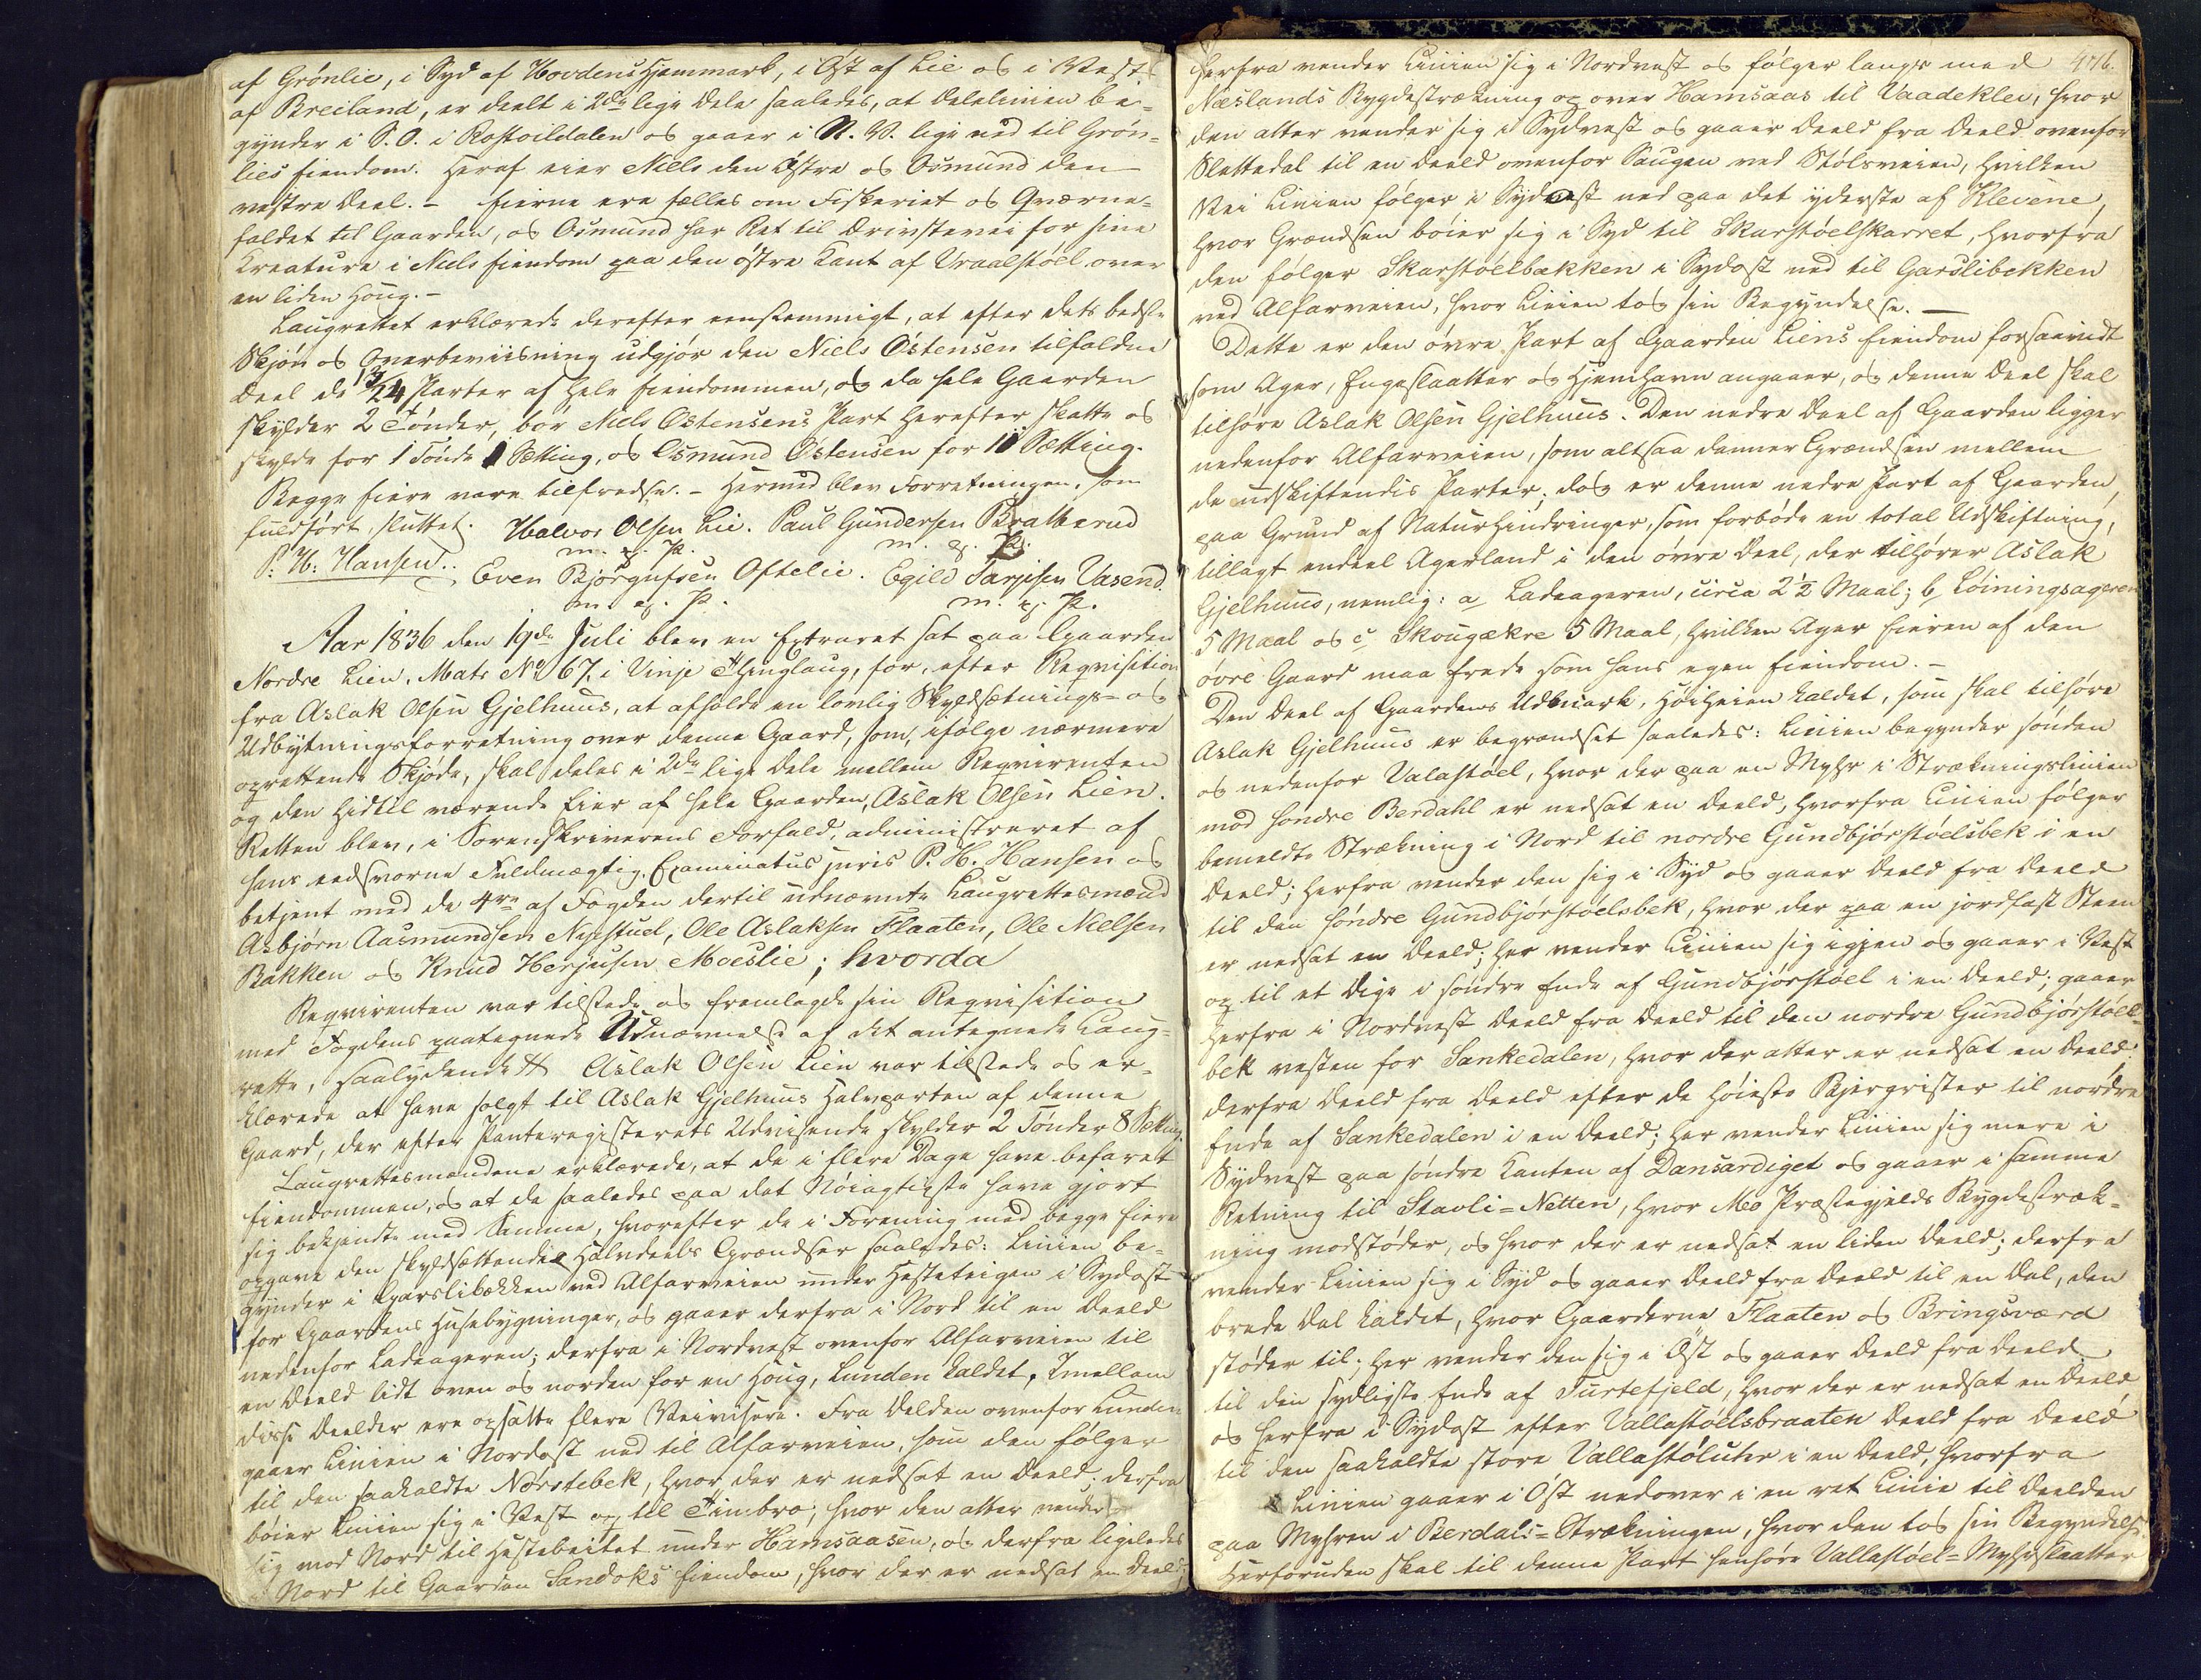 af Grønlie, i Syd af Hovdens Hjemmark, i Øst af Lie og i Vest
af Breiland, er deelt i 2de lige Dele saaledes, at Delelinien be-
gynder i S. O. i Rostoildalen og gaaer i N. V. lige ned til Grøn-
lies Eiendom. Heraf eier Niels den Østre og Osmund den
vestre Deel. – Eierne ere fælles om Fiskeriet og Qværne-
faldet til Gaarden, og Osmund har Ret til Drivstevei for sine
Kreature i Niels Eiendom paa den østre Kant af Vraalstøel over
en liden Houg. –
Laugrettet erklærede derefter eenstemmigt, at efter dets bedste
Skjøn og Overbeviisning udgjør den Niels Østensen tilfaldne
Deel de 13/24 Parter af hele Eiendommen, og da hele Gaarden
skylder 2 Tønder, bør Niels Østensens Part herefter skatte og
skylde for 1 Tønde 1 Setting, og Osmund Østensen for 11 Setting.
Begge Eiere vare tilfredse. – Hermed blev Forretningen, som
fuldført, sluttet. Halvor Olsen Lie. Paul Gundersen Bratterud
P. H. Hansen. m. p. P. m. p. P.
Even Bjørgufsen Oftelie. Egild Tarjeisen Vasend.
m. p. P. m. p. P.
Aar 1836 den 19de Juli blev en Extraret sat paa Gaarden
Nordre Lien, Matr No 67, i Vinje Thinglaug, for, efter Reqvisition
fra Aslak Olsen Gjelhuus, at afholde en lovlig Skyldsætnings- og
Udbytningsforretning over denne Gaard, som, ifølge nærmere
oprettende Skjøde, skal deles i 2de lige Dele mellem Reqvirenten
og den hidtil værende Eier af hele Gaarden, Aslak Olsen Lien.
Retten blev, i Sorenskriverens Forfald, administreret af
hans eedsvorne Fuldmægtig, Examinatus juris P. H. Hansen og
betjent med de 4re af Fogden dertil udnævnte Laugrettesmænd
Asbjørn Aasmundsen Nystuel, Ole Aslaksen Flaaten, Ole Nielsen
Bakken og Knud Herjusen Moeslie; hvorda
Reqvirenten var tilstede og fremlagde sin Reqvisition
med Fogdens paategnede Udnævnelse af det antegnede Laug-
rette, saalydende # Aslak Olsen Lien var tilstede og er-
klærede at have solgt til Aslak Gjelhuus Halvparten af denne
Gaard, der efter Panteregisterets Udvisende skylder 2 Tønder 8 Setting.
Laugrettesmændene erklærede, at de i flere Dage have befaret
Eiendommen, og at de saaledes paa det Nøiagtigste have gjort
sig bekjendte med Samme, hvorefter de i Forening med begge Eiere
opgave den skyldsættendes Halvdeels Grændser saaledes: Linien be-
gynder i Garslibækken ved Alfarveien under Hesteteigen i Sydost
for Gaardens Husebygninger, og gaaer derfra i Nord til en Deeld
nedenfor Ladeageren; derfra i Nordvest ovenfor Alfarveien til
en Deeld lidt oven og norden for en Houg, Lunden kaldet, Imellem
disse Deelder ere opsatte flere Veivisere. Fra Delden ovenfor Lunden
gaaer Linien i Nordost ned til Alfarveien, som den følger
til den saakaldte Norstebek, hvor der er nedsat en Deeld; derfra
bøier Linien sig i Vest op til Timbro, hvor den atter vender
sig mod Nord til Hestebeitet under Hamsaasen, og derfra ligeledes
i Nord til Gaarden Sandoks Eiendom, hvor der er nedsat en Deeld;
476.
herfra vender Linien sig i Nordvest og følger langs med
Næslands Bygdestrækning op over Hamsaas til Vaadeklei, hvor
den atter vender sig i Sydvest og gaaer Deeld fra Deeld ovenfor
Slettedal til en Deeld ovenfor Saugen ved Stølsveien, hvilken
Vei Linien følger i Sydvest ned paa det yderste af Klevene,
hvor Grændsen bøier sig i Syd til Skarstøelskarret, hvorfra
den følger Skarstøelbækken i Sydost ned til Garslibekken
ved Alfarveien, hvor Linien tog sin Begyndelse. —
Dette er den øvre Part af Gaarden Liens Eiendom forsaavidt
som Ager, Engeslaatter og Hjemhavn angaaer, og denne Deel skal
tilhøre Aslak Olsen Gjelhuus. Den nedre Deel af Gaarden ligger
nedenfor Alfarveien, som altsaa danner Grændsen mellem
de udskiftendes Parter; dog er denne nedre Part af Gaarden,
paa Grund af Naturhindringer, som forbøde en total Udskiftning,
tillagt endeel Agerland i den øvre Deel, der tilhører Aslak
Gjelhuus, nemlig: a, Ladeageren, circa 2 1/2 Maal; b, Løiningsageren
5 Maal og c, Skougækre 5 Maal, hvilken Ager Eieren af den
øvre Gaard maa frede som hans egen Eiendom. –
Den Deel af Gaardens Udmark, Høiheien kaldet, som skal tilhøre
Aslak Gjelhuus er begrændset saaledes: Linien begynder sønden
og nedenfor Valastøel, hvor der paa en Myhr i Strækningslinien
mod søndre Berdahl er nedsat en Deeld, hvorfra Linien følger
bemeldte Strækning i Nord til nordre Gundbjørstøelsbek i en
Deeld; herfra vender den sig i Syd og gaaer Deeld fra Deeld
til den søndre Gundbjørstøelsbek, hvor der paa en jordfast Steen
er nedsat en Deeld; her vender Linien sig igjen og gaaer i Vest
op til et Dige i søndre Ende af Gundbjørstøel i en Deeld; gaaer
herfra i Nordvest Deeld fra Deeld til den nordre Gundbjørstøel-
bek vesten for Sankedalen, hvor der atter er nedsat en Deeld;
derfra Deeld fra Deeld efter de høieste Bjergrister til nordre
Ende af Sankedalen i en Deeld; her vender Linien sig mere i
Sydvest paa søndre Kanten af Dansardiget og gaaer i samme
Retning til Stavli=Netten, hvor Moe Præstegjelds Bygdestræk-
ning modstøder, og hvor der er nedsat en liden Deeld; derfra
vender Linien sig i Syd og gaaer Deeld fra Deeld til en Dal, den
brede Dal kaldet, hvor Gaarderne Flaaten og Bringsværd
støder til; her vender den sig i Øst og gaaer Deeld fra Deeld
til den sydligste Ende af Turtefjeld, hvor der er nedsat en Deeld
og herfra i Sydost efter Vallastøelsbraaten Deeld fra Deeld
til den saakaldte store Vallastøluhr i en Deeld, hvorfra
Linien gaaer i Øst nedover i en ret Linie til Deelden
paa Myhren i Berdals=Strækningen, hvor den tog sin Begyndelse.
Herforuden skal til denne Part henhøre Vallastøel=Myhrslaatter